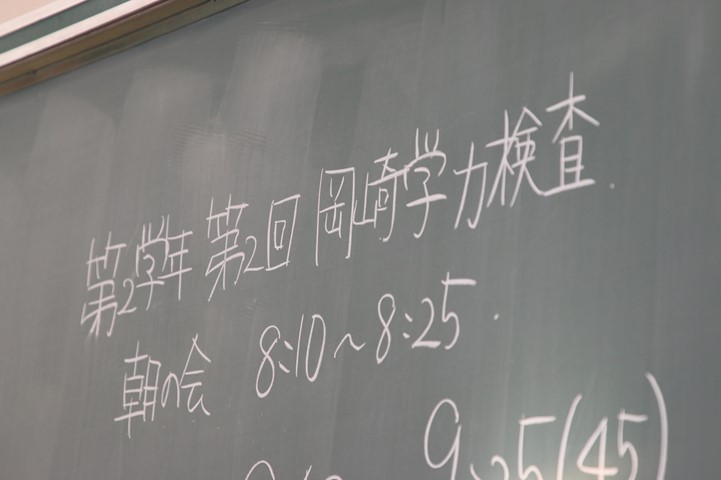 第2学年 第2回 岡崎学力検査.
朝の会 8:10~8:25.
9:25(45)